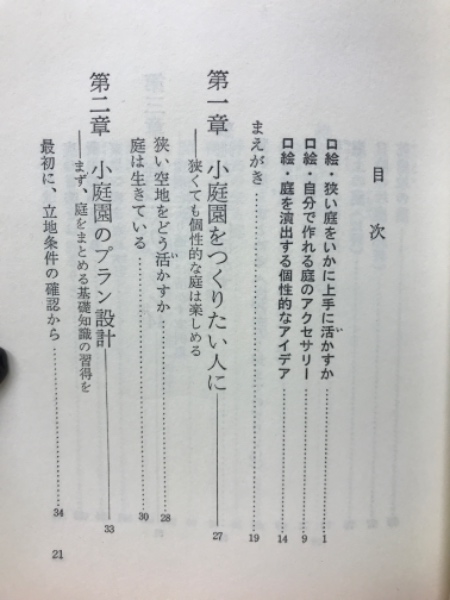 目次
口絵・狭い庭をいかに上手に活かすか……1
口絵・自分で作れる庭のアクセサリー……9
口絵・庭を演出する個性的なアイデア……14
まえがき……19
第一章 小庭園をつくりたい人に——27
——狭くても個性的な庭は楽しめる
狭い空地をどう活かすか……28
庭は生きている……30
第二章 小庭園のプラン設計——33
——まず、庭をまとめる基礎知識の習得を
最初に、立地条件の確認から……34
21